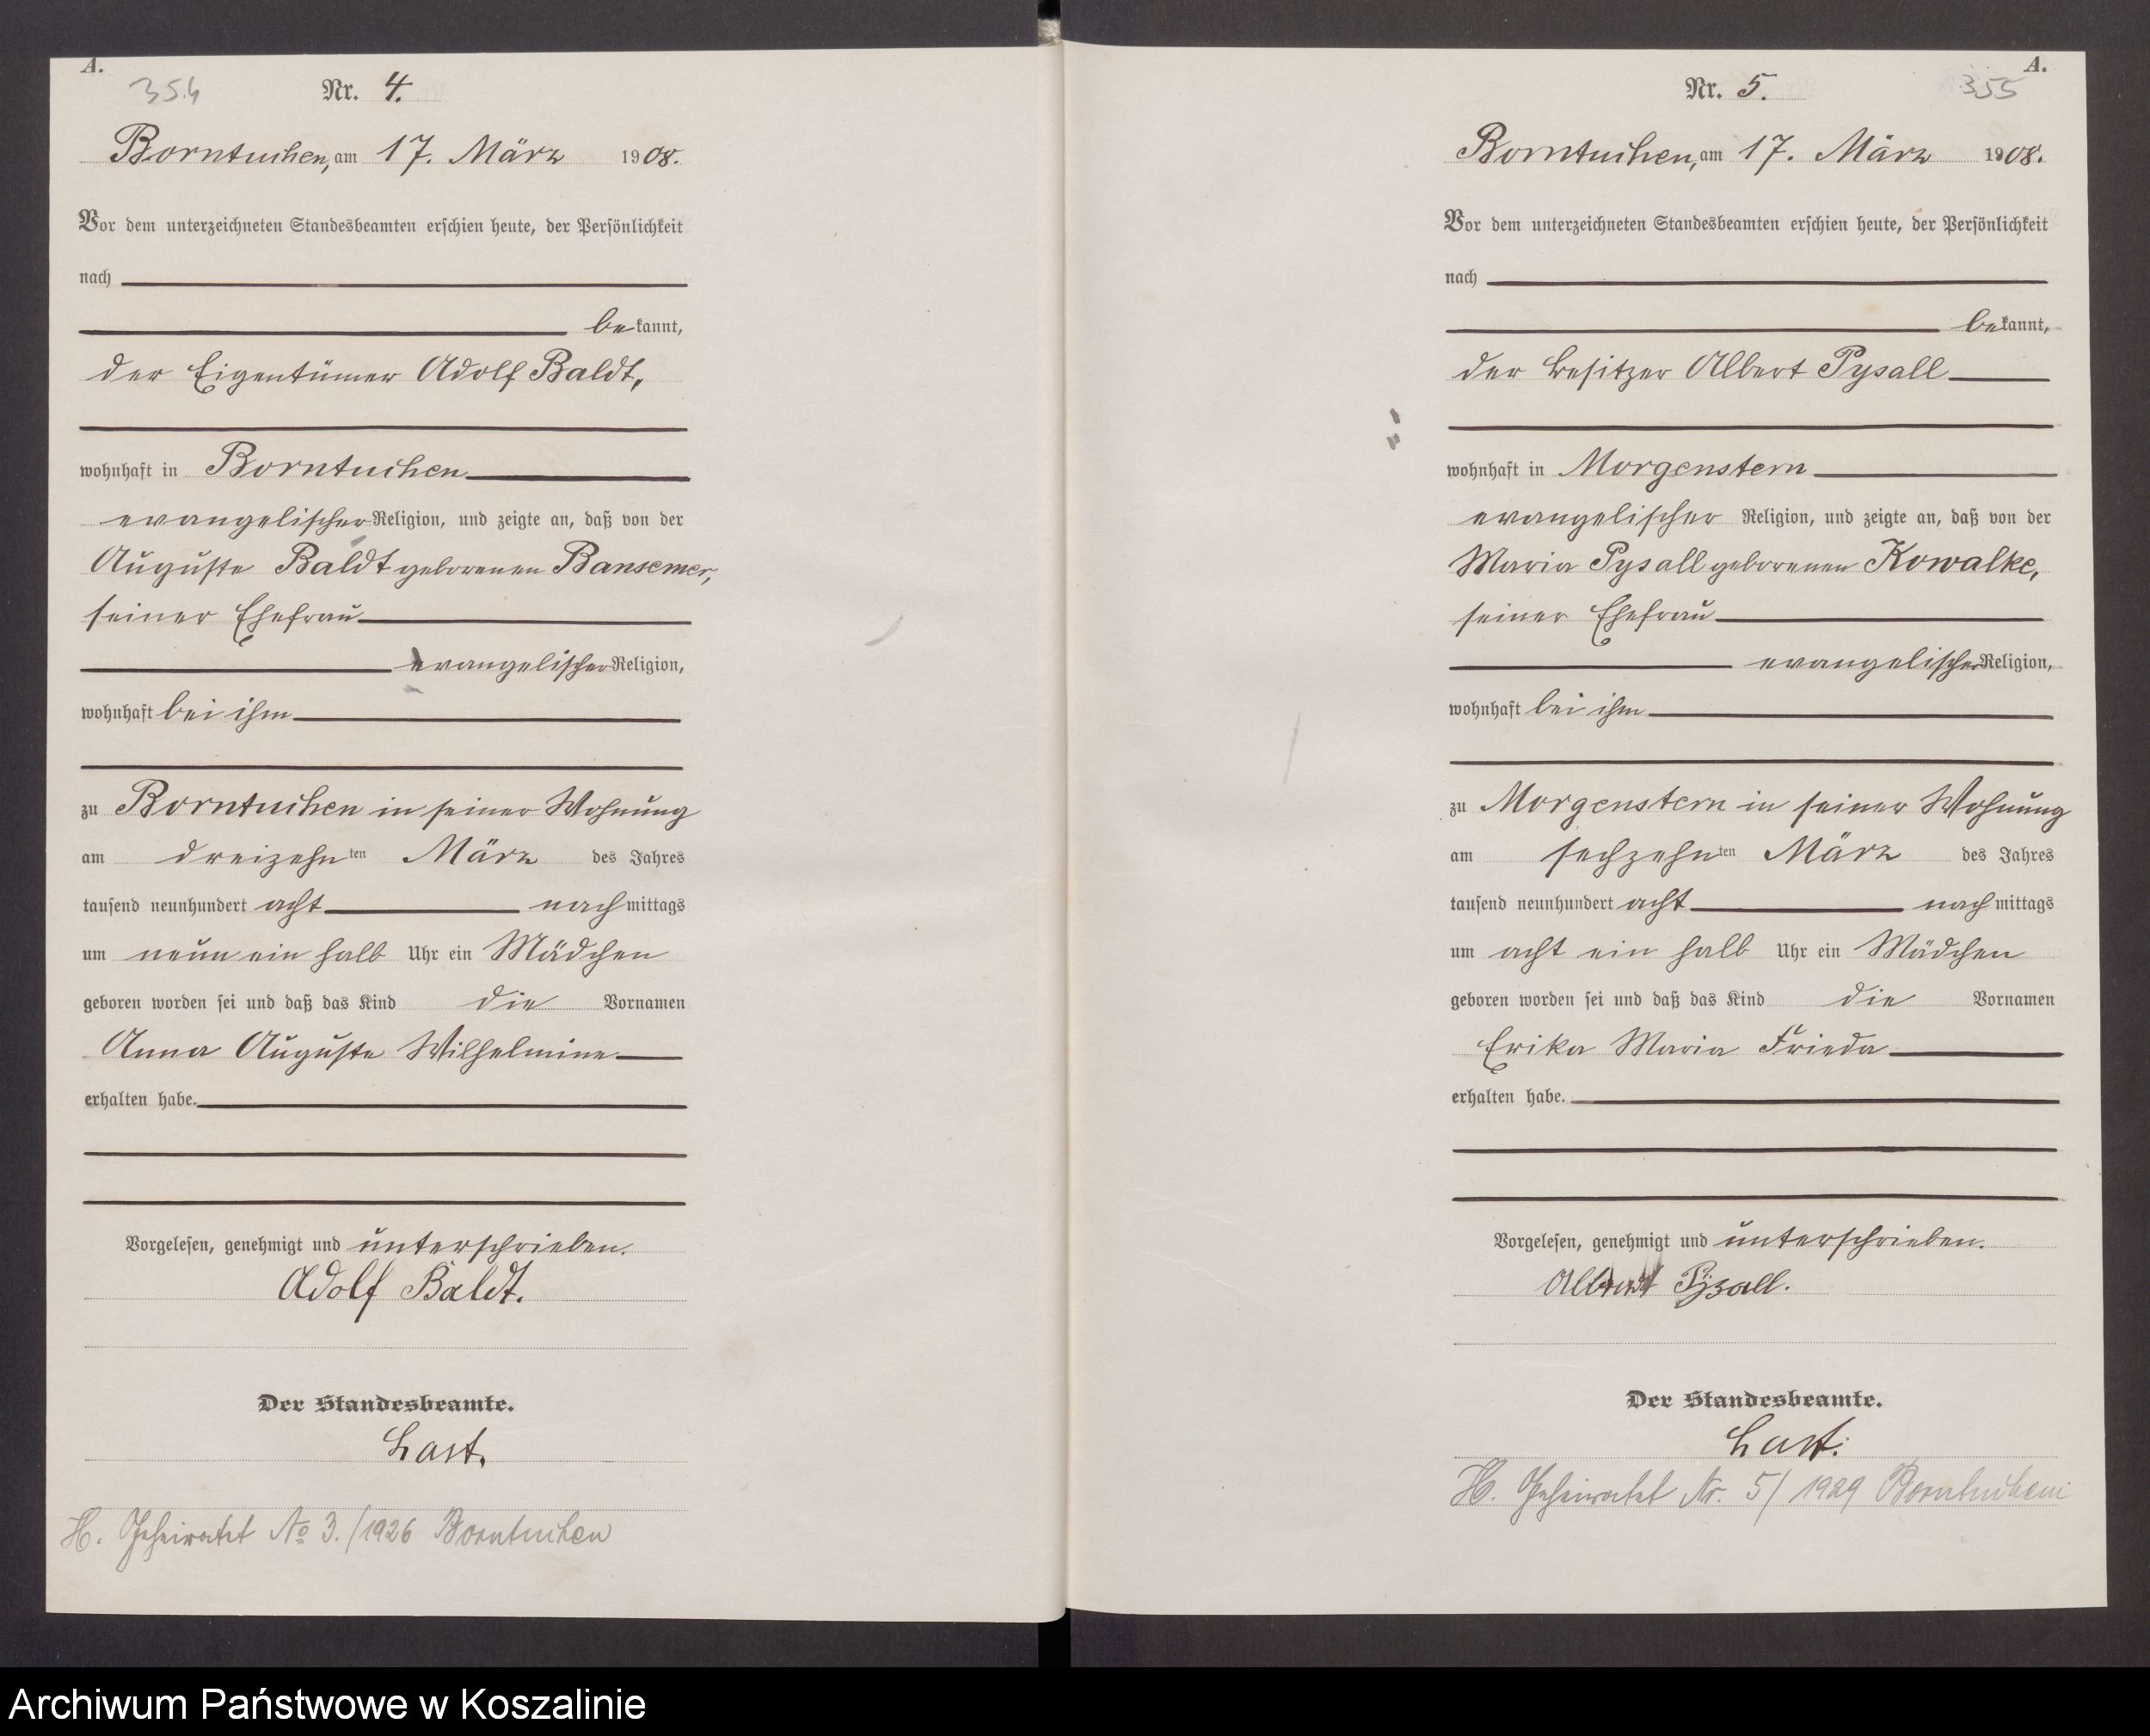 A.
354
Nr. 4.
Borntuchen, am 17. März 1908.
Vor dem unterzeichneten Standesbeamten erschien heute, der Persönlichkeit
nach
bekannt,
der Eigentümer Adolf Baldt,
wohnhaft in Borntuchen
evangelischer Religion, und zeigte an, daß von der
Auguste Baldt geborenen Bansemer,
seiner Ehefrau
evangelischer Religion,
wohnhaft bei ihm
zu Borntuchen in seiner Wohnung
am dreizehnten März des Jahres
tausend neunhundert acht nachmittags
um neun ein halb Uhr ein Mädchen
geboren worden sei und daß das Kind die Vornamen
Anna Auguste Wilhelmine
erhalten habe.
Vorgelesen, genehmigt und unterschrieben.
Adolf Baldt.
Der Standesbeamte.
Last.
H. Geheiratet No 3./1926 Borntuchen
A.
355
Nr. 5.
Borntuchen, am 17. März 1908.
Vor dem unterzeichneten Standesbeamten erschien heute, der Persönlichkeit
nach
bekannt,
der Besitzer Albert Pysall
wohnhaft in Morgenstern
evangelischer Religion, und zeigte an, daß von der
Maria Pysall geborenen Kowalke,
seiner Ehefrau
evangelischer Religion,
wohnhaft bei ihm
zu Morgenstern in seiner Wohnung
am sechzehnten März des Jahres
tausend neunhundert acht nachmittags
um acht ein halb Uhr ein Mädchen
geboren worden sei und daß das Kind die Vornamen
Erika Maria Frieda
erhalten habe.
Vorgelesen, genehmigt und unterschrieben.
Albert Pÿsall.
Der Standesbeamte.
Last.
H. Geheiratet Nr. 5/1929 Borntuchen
Archiwum Państwowe w Koszalinie